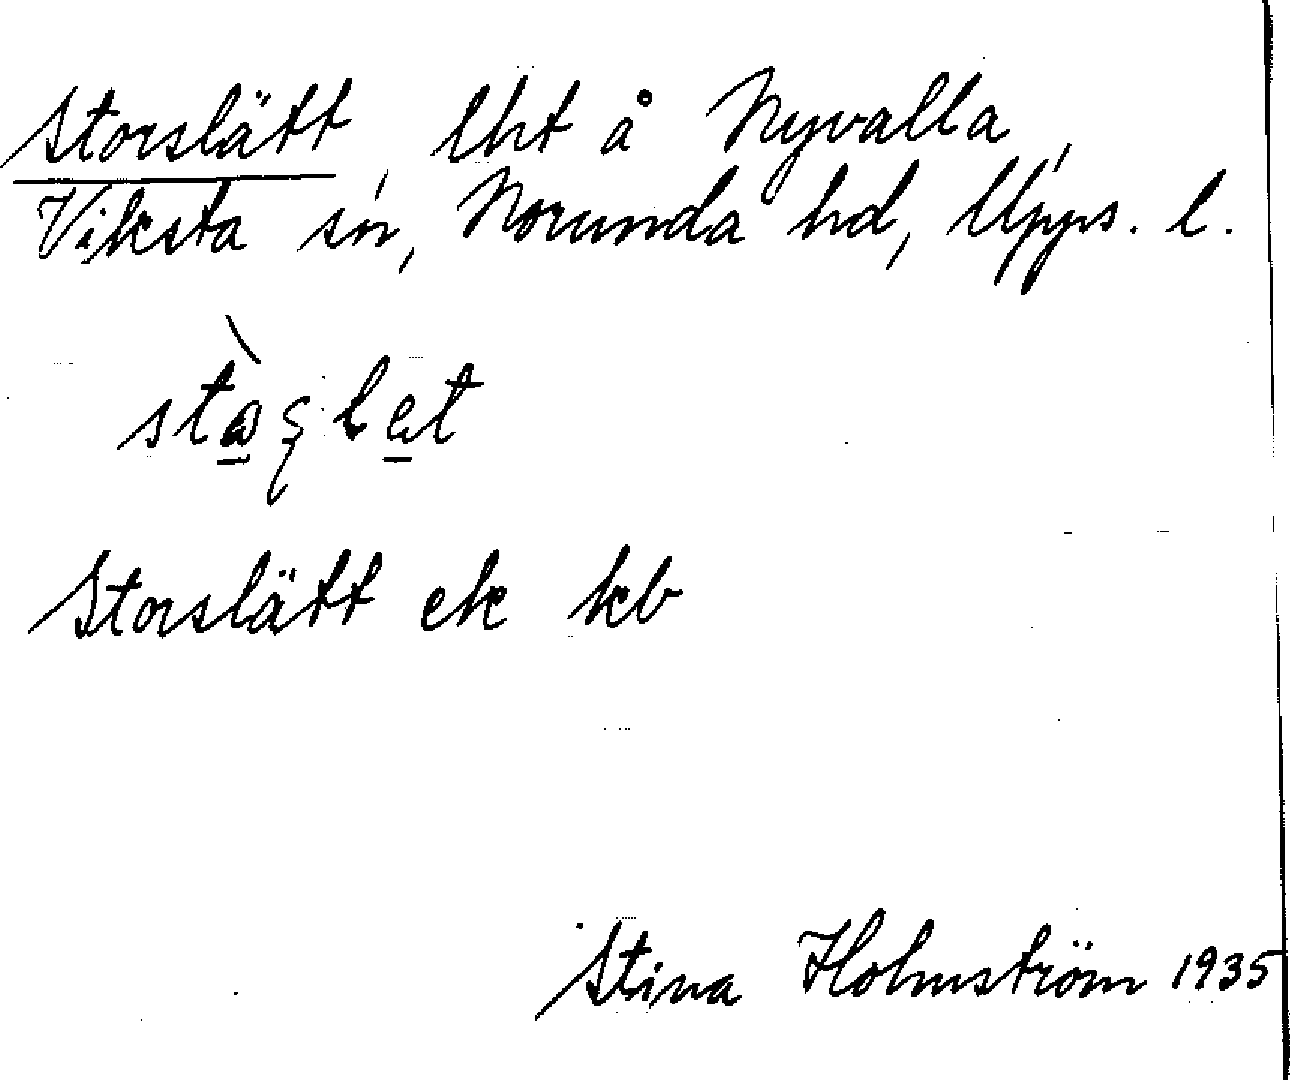 Storslätt, lht å Nyvalla,
Viksta sn, Norunda hd, Upps. l.
Storslätt ek kb
Stina Holmström 1935